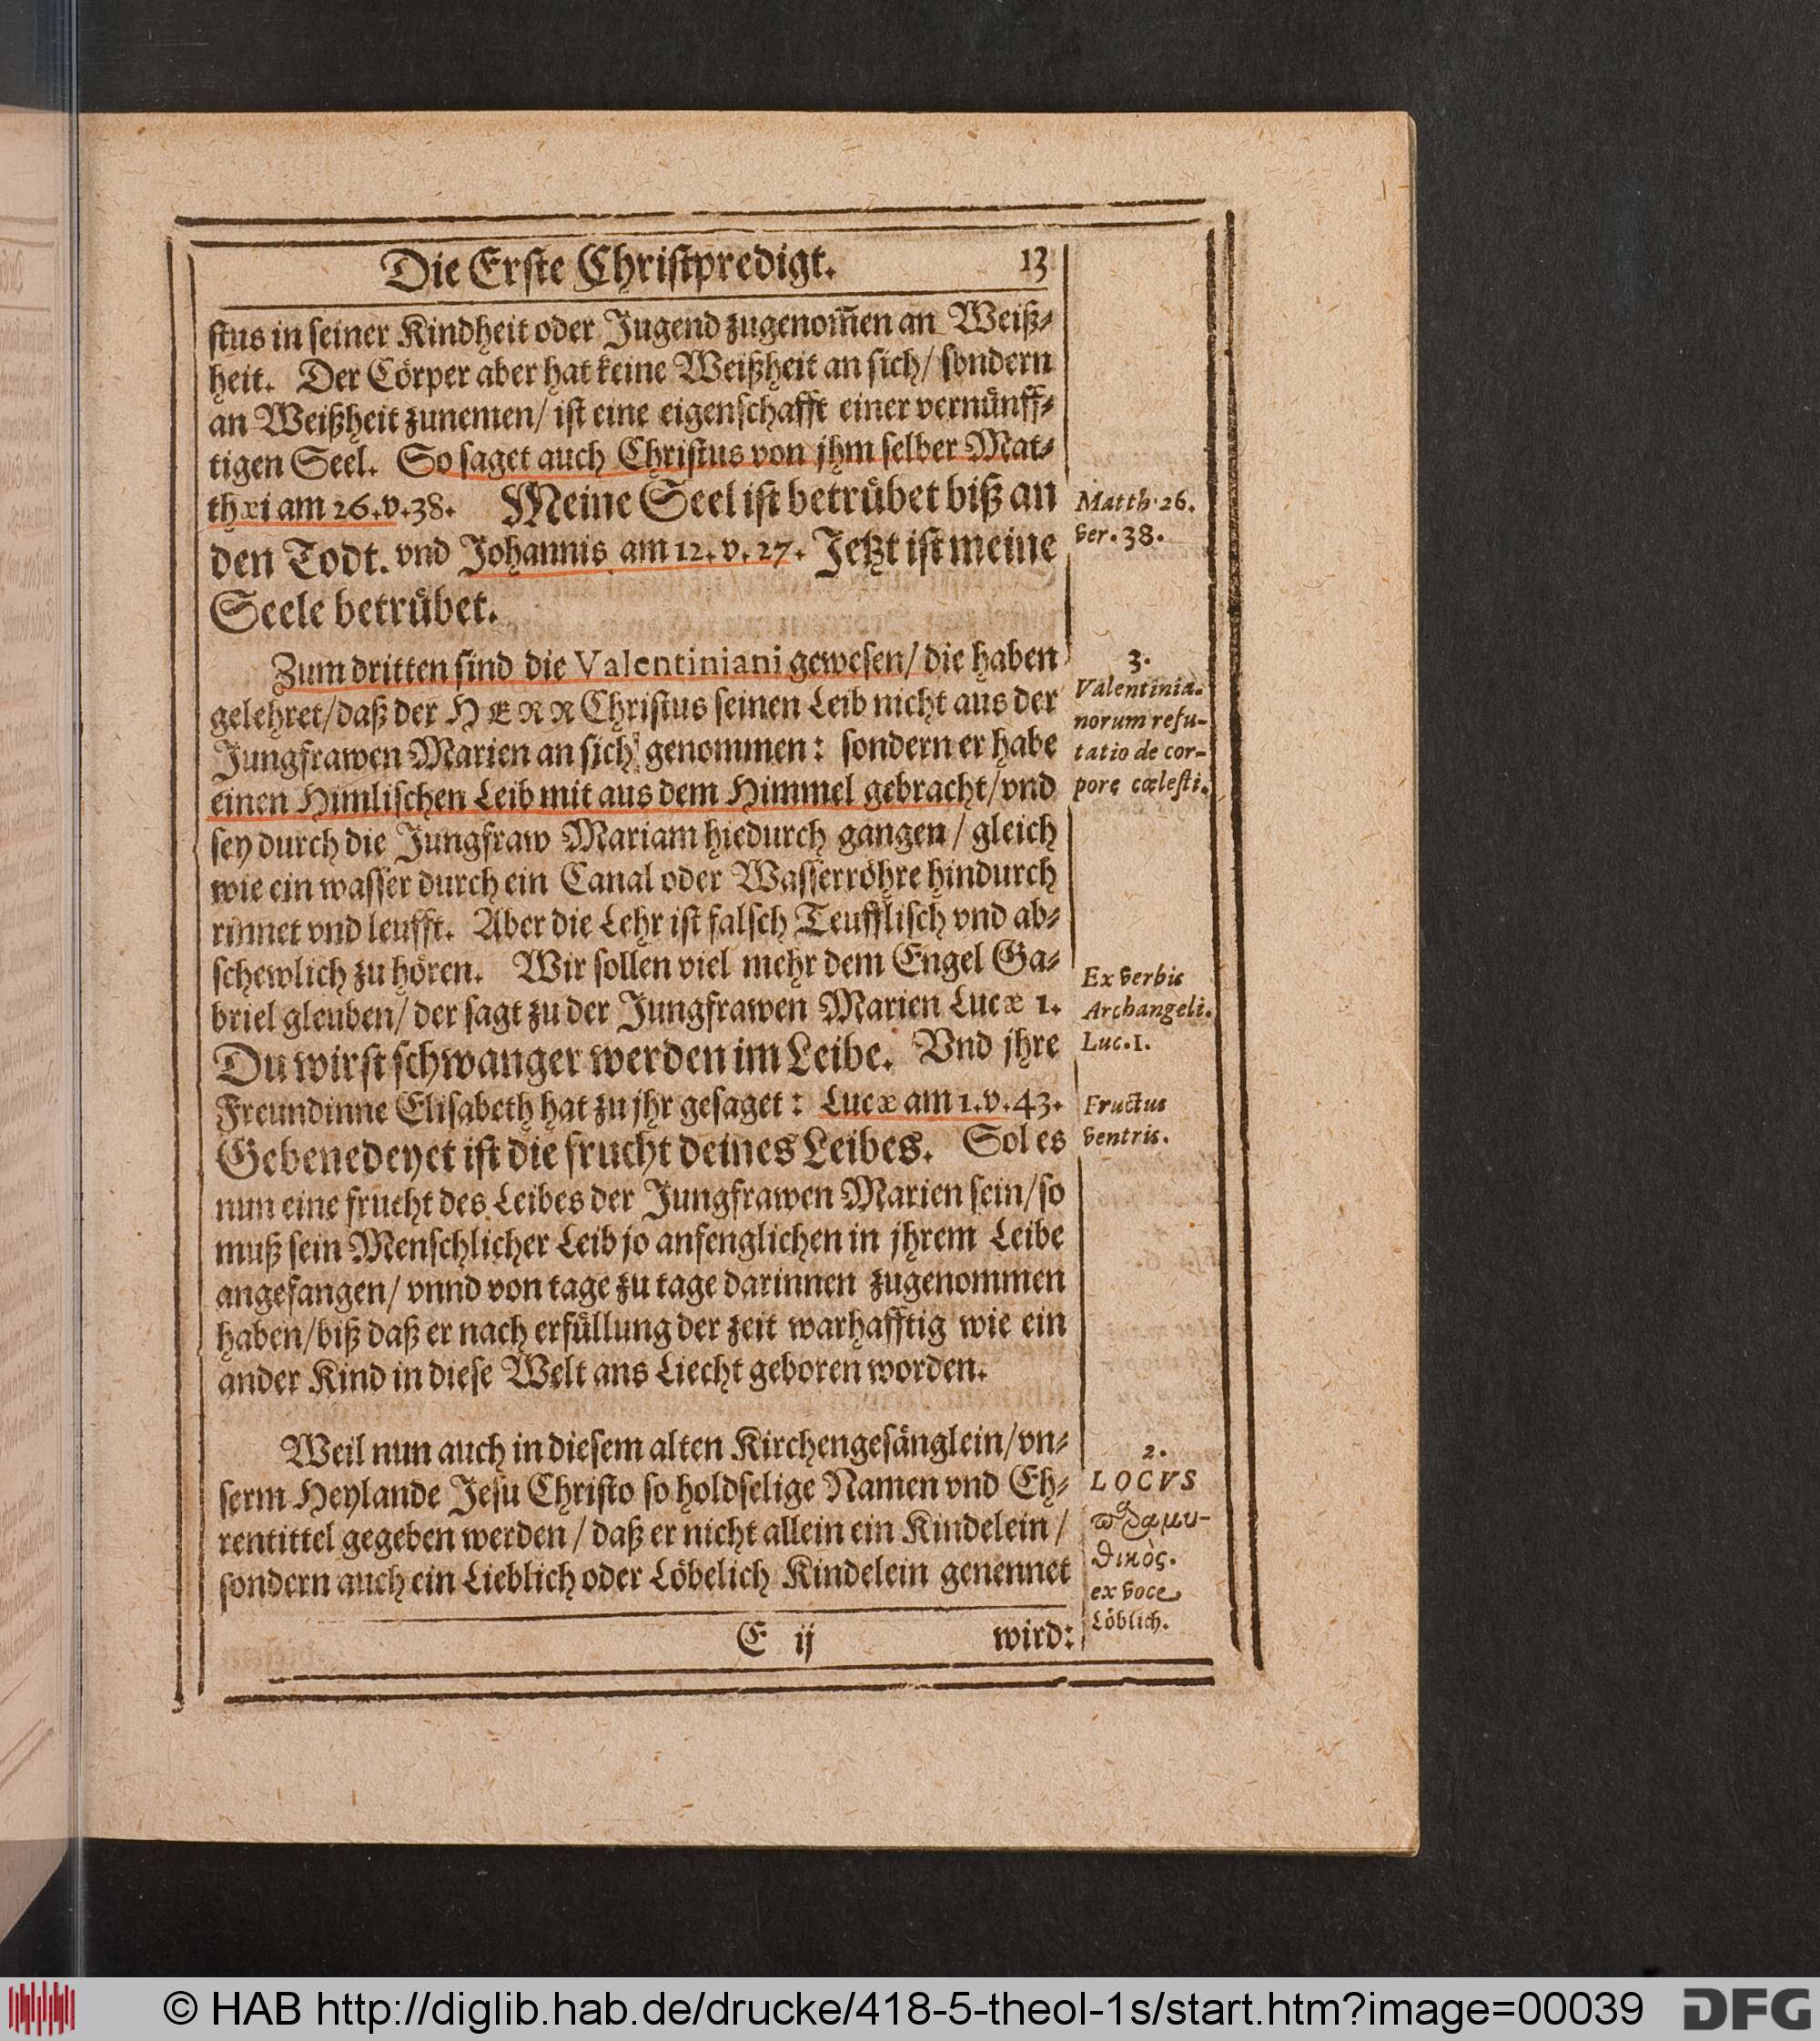 Die Erste Christpredigt. 13
stus in seiner Kindheit oder Jugend zugenom̃en an Weiß⸗
heit. Der Cörper aber hat keine Weißheit an sich/ sondern
an Weißheit zunemen/ ist eine eigenschafft einer vernünff⸗
tigen Seel. So saget auch Christus von jhm selber Mat⸗
thæi am 26.v.38. Meine Seel ist betrübet biß an
den Todt. vnd Johannis am 12.v.27. Jetzt ist meine
Seele betrübet.
Matth. 26.
ver. 38.
Zum dritten sind die Valentiniani gewesen/ die haben
gelehret/ daß der HERR Christus seinen Leib nicht aus der
Jungfrawen Marien an sich genommen: sondern er habe
einen Himlischen Leib mit aus dem Himmel gebracht/ vnd
sey durch die Jungfraw Mariam hiedurch gangen/ gleich
wie ein wasser durch ein Canal oder Wasserröhre hindurch
rinnet vnd leufft. Aber die Lehr ist falsch Teufflisch vnd ab⸗
schewlich zu hören. Wir sollen viel mehr dem Engel Ga⸗
briel gleuben/ der sagt zu der Jungfrawen Marien Lucæ 1.
Du wirst schwanger werden im Leibe. Vnd jhre
Freundinne Elisabeth hat zu jhr gesaget: Lucæ am 1.v.43.
Gebenedeyet ist die frucht deines Leibes. Sol es
nun eine frucht des Leibes der Jungfrawen Marien sein/ so
muß sein Menschlicher Leib jo anfenglichen in jhrem Leibe
angefangen/ vnnd von tage zu tage darinnen zugenommen
haben/ biß daß er nach erfüllung der zeit warhafftig wie ein
ander Kind in diese Welt ans Liecht geboren worden.
3.
Valentinia-
norum refu-
tatio de cor-
pore cœlesti.
Ex verbis
Archangeli.
Luc. 1.
Fructus
ventris.
Weil nun auch in diesem alten Kirchengesänglein/ vn⸗
serm Heylande Jesu Christo so holdselige Namen vnd Eh⸗
rentittel gegeben werden/ daß er nicht allein ein Kindelein/
sondern auch ein Lieblich oder Löbelich Kindelein genennet
2.
LOCVS
παραμυ-
θικὸς.
ex voce
Löblich.
E ij wird:
© HAB http://diglib.hab.de/drucke/418-5-theol-1s/start.htm?image=00039
DFG